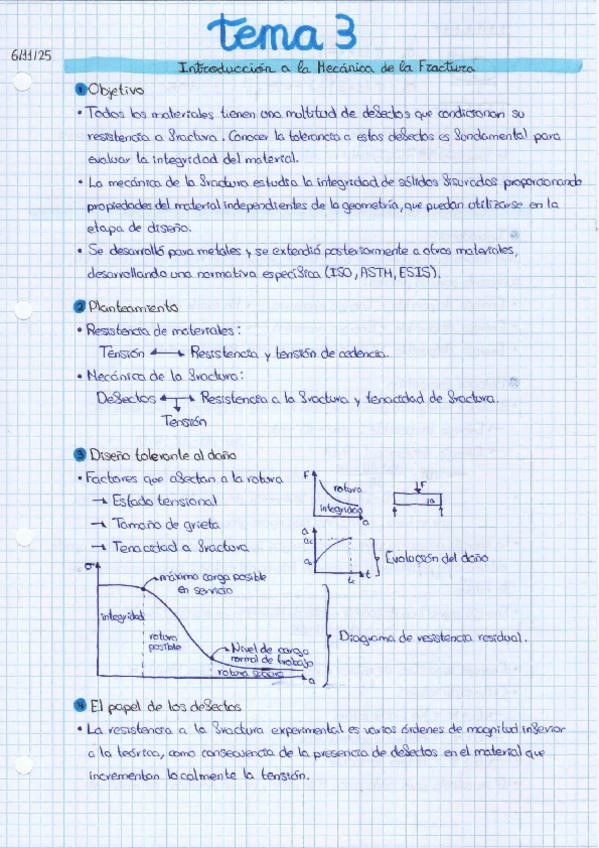 tema 3
6/11/25
Introducción a la Mecánica de la Fractura
1 Objetivo
• Todos los materiales tienen una multitud de defectos que condicionan su
resistencia a fractura. Conocer la tolerancia a estos defectos es fundamental para
evaluar la integridad del material.
• La mecánica de la fractura estudia la integridad de sólidos fisurados proporcionando
propiedades del material independientes de la geometría, que puedan utilizarse en la
etapa de diseño.
• Se desarrolló para metales y se extendió posteriormente a otros materiales,
desarrollando una normativa específica (ISO, ASTM, ESIS).
2 Planteamiento
• Resistencia de materiales:
Tensión ↔ Resistencia y tensión de cedencia.
• Mecánica de la fractura:
Defectos ↔ Resistencia a la fractura y tenacidad de fractura.
Tensión
3 Diseño tolerante al daño
• Factores que afectan a la rotura
→ Estado tensional
→ Tamaño de grieta
→ Tenacidad a fractura
F
rotura
integridad
a
F
a
a
ac
a0
tc
t
Evolución del daño
σ
máxima carga posible
en servicio
integridad
rotura
posible
Nivel de carga
normal de trabajo
rotura segura
a
Diagrama de resistencia residual.
4 El papel de los defectos
• La resistencia a la fractura experimental es varios órdenes de magnitud inferior
a la teórica, como consecuencia de la presencia de defectos en el material que
incrementan localmente la tensión.